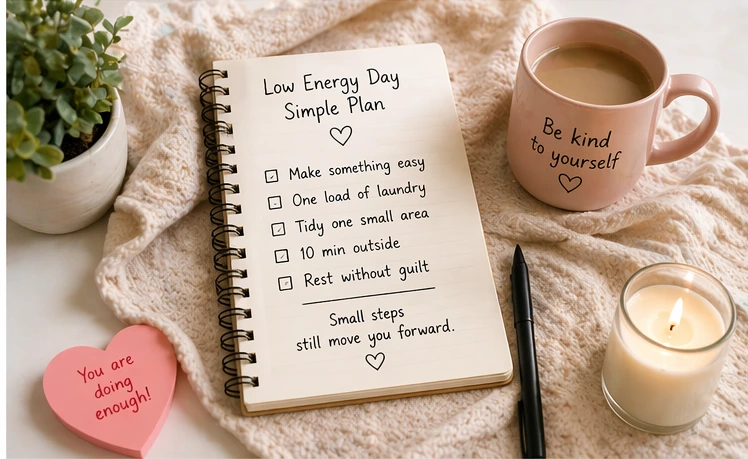 Low Energy Day
Simple Plan
Make something easy
One load of laundry
Tidy one small area
10 min outside
Rest without guilt
Small steps
still move you forward.
Be kind
to yourself
You are
doing
enough!